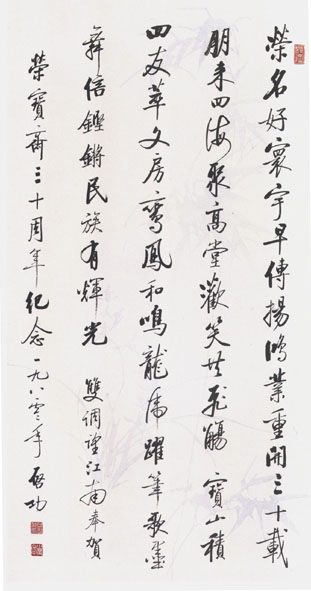 榮名好寰宇早傳揚鴻業重開三十載
朋來四海聚高堂歡笑共飛觴 寶山積
四友萃文房鸞鳳和鳴龍虎躍筆歌墨
舞信鏗鏘民族有輝光 雙調望江南奉賀
榮寶齋三十周年紀念一九八零年 啟功